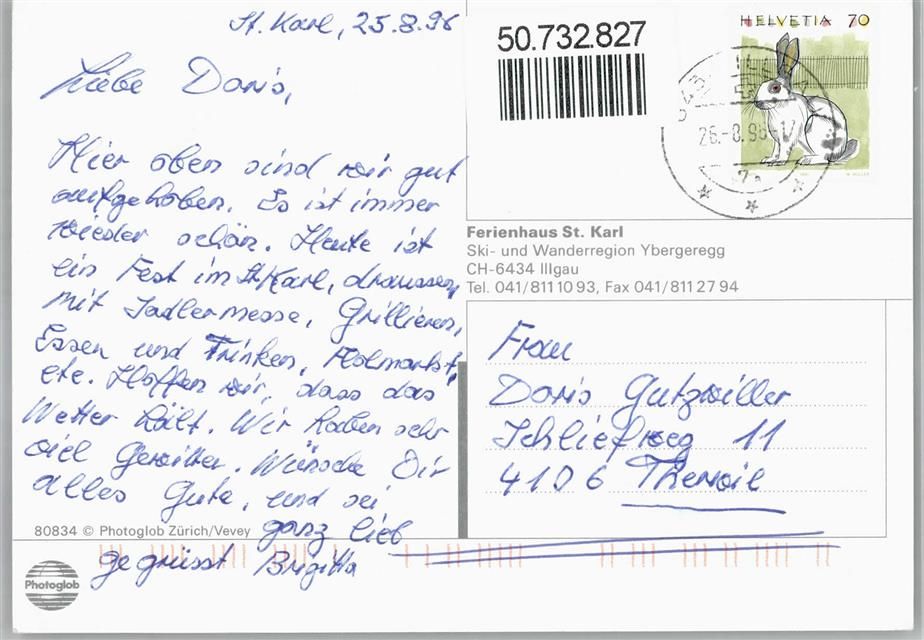 St. Karl, 25.8.96
Liebe Doris,
Hier oben sind wir gut
aufgehoben. Es ist immer
wieder schön. Heute ist
ein Fest im St. Karl, draussen,
mit Jodlermesse, Grillieren,
Essen und Trinken, Flohmarkt,
etc. Hoffen wir, dass das
Wetter hält. Wir haben sehr
viel Gewitter. Wünsche Dir
alles Gute, und sei
ganz lieb
gegrüsst Brigitta
80834 © Photoglob Zürich/Vevey
Photoglob
50.732.827
HELVETIA 70
26.-8.96-17
Ferienhaus St. Karl
Ski- und Wanderregion Ybergeregg
CH-6434 Illgau
Tel. 041/811 10 93, Fax 041/811 27 94
Frau
Doris Gutzwiller
Schliefweg 11
4106 Therwil